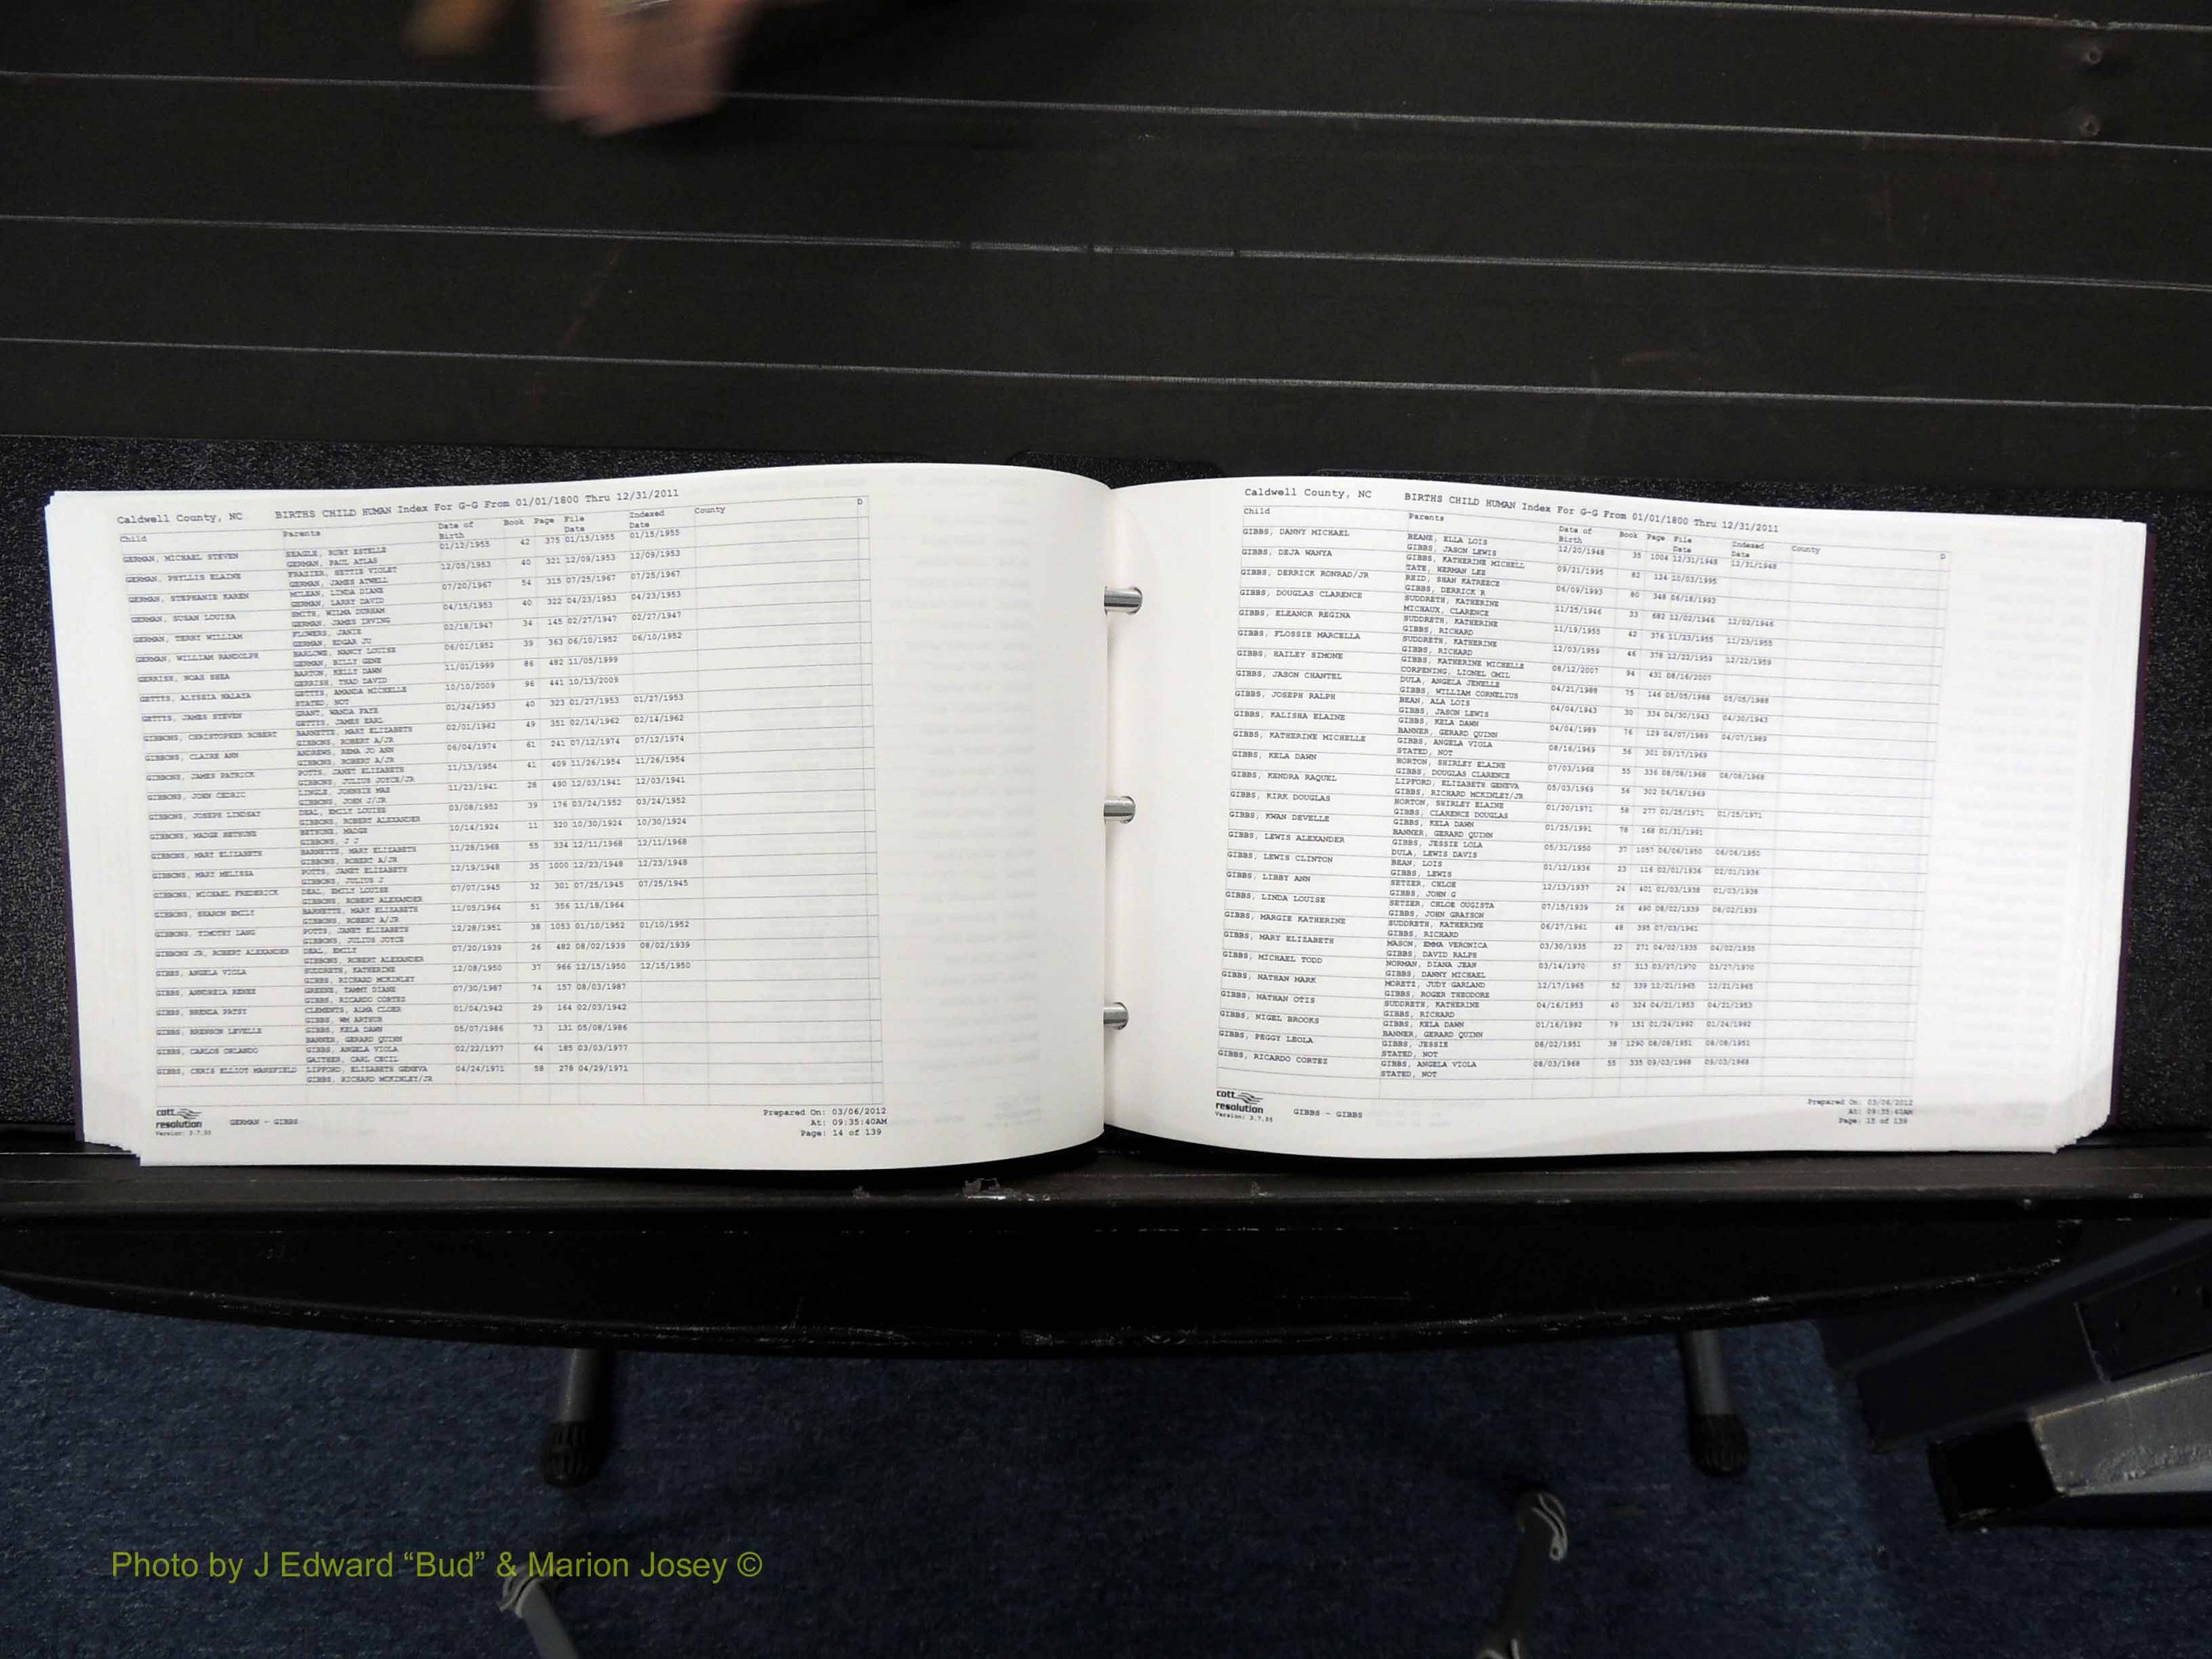 Caldwell County, NC BIRTHS CHILD HUMAN Index For G-G From 01/01/1800 Thru 12/31/2011
Child Parents Date of Birth Book Page File Date Indexed Date County D
GERMAN, MICHAEL STEVEN SEAGLE, RUBY ESTELLE 01/12/1955 42 375 01/15/1955 01/15/1955
GERMAN, PAUL ATLAS
GERMAN, PHYLLIS ELAINE FRAZIER, HETTIE VIOLET 12/05/1953 40 321 12/09/1953 12/09/1953
GERMAN, JAMES ATWELL
GERMAN, STEPHANIE KAREN MCLEAN, LINDA DIANE 07/20/1967 54 315 07/25/1967 07/25/1967
GERMAN, LARRY DAVID
GERMAN, SUSAN LOUISA SMITH, WILMA DURHAM 04/15/1953 40 322 04/23/1953 04/23/1953
GERMAN, JAMES IRVING
GERMAN, TERRY WILLIAM FLOWERS, JANIE 02/18/1947 34 145 02/27/1947 02/27/1947
GERMAN, EDGAR JU
GERMAN, WILLIAM RANDOLPH BARLOWE, NANCY LOUISE 06/01/1952 39 363 06/10/1952 06/10/1952
GERMAN, BILLY GENE
GERRISH, NOAH SHEA BARTON, KELLY DAWN 11/01/1999 86 482 11/05/1999
GERRISH, THAD DAVID
GETTYS, ALYSSIA GETTYS, AMANDA MICHELLE 10/10/2009 96 441 10/13/2009
STATED, NOT
GETTYS, JAMES STEVEN GRANT, WANDA FAYE 01/24/1953 40 323 01/27/1953 01/27/1953
GETTYS, JAMES EARL
GIBBONS, CHRISTOPHER ROBERT BARNETTE, MARY ELIZABETH 02/01/1962 49 351 02/14/1962 02/14/1962
GIBBONS, ROBERT A/JR
GIBBONS, CLAIRE ANN ANDREWS, REMA JO ANN 06/04/1974 61 241 07/12/1974 07/12/1974
GIBBONS, ROBERT A/JR
GIBBONS, JAMES PATRICK POTTS, JANET ELIZABETH 11/13/1954 41 409 11/26/1954 11/26/1954
GIBBONS, JULIUS JOYCE/JR
GIBBONS, JOHN CEDRIC LINGLE, JOHNSIE MAE 11/23/1941 28 490 12/03/1941 12/03/1941
GIBBONS, JOHN J/JR
GIBBONS, JOSEPH LINDSAY DEAL, EMILY LOUISE 03/08/1952 39 176 03/24/1952 03/24/1952
GIBBONS, ROBERT ALEXANDER
GIBBONS, MADGE BETHUNE BETHUNE, MADGE 10/14/1924 11 320 10/30/1924 10/30/1924
GIBBONS, J J
GIBBONS, MARY ELIZABETH BARNETTE, MARY ELIZABETH 11/28/1968 55 334 12/11/1968 12/11/1968
GIBBONS, ROBERT A/JR
GIBBONS, MARY MELISSA POTTS, JANET ELIZABETH 12/19/1948 35 1000 12/23/1948 12/23/1948
GIBBONS, JULIUS J
GIBBONS, MICHAEL FREDERICK DEAL, EMILY LOUISE 07/07/1945 32 301 07/25/1945 07/25/1945
GIBBONS, ROBERT ALEXANDER
GIBBONS, SHARON EMILY BARNETTE, MARY ELIZABETH 11/05/1964 51 356 11/18/1964
GIBBONS, ROBERT A/JR
GIBBONS, TIMOTHY LANG POTTS, JANET ELIZABETH 12/28/1951 38 1053 01/10/1952 01/10/1952
GIBBONS, JULIUS JOYCE
GIBBONS JR, ROBERT ALEXANDER DEAL, EMILY 07/20/1939 26 482 08/02/1939 08/02/1939
GIBBONS, ROBERT ALEXANDER
GIBBS, ANGELA VIOLA SUDDRETH, KATHERINE 12/08/1950 37 966 12/15/1950 12/15/1950
GIBBS, RICHARD MCKINLEY
GIBBS, ANNDREIA RENEE GREENE, TAMMY DIANE 07/30/1987 74 157 08/03/1987
GIBBS, RICARDO CORTEZ
GIBBS, BRENDA PATSY CLEMENTS, ALMA CLOER 01/04/1942 29 164 02/03/1942
GIBBS, WM ARTHUR
GIBBS, BRENSON LEVELLE GIBBS, KELA DAWN 05/07/1986 73 131 05/08/1986
BANNER, GERARD QUINN
GIBBS, CARLOS ORLANDO GIBBS, ANGELA VIOLA 02/22/1977 64 185 03/03/1977
GAITHER, CARL CECIL
GIBBS, CHRIS ELLIOT MANSFIELD LIPFORD, ELIZABETH GENEVA 04/24/1971 58 278 04/29/1971
GIBBS, RICHARD MCKINLEY/JR
cott resolution
Version: 3.7.35
GERMAN - GIBBS
Prepared On: 03/06/2012
At: 09:35:40AM
Page: 14 of 139
Caldwell County, NC BIRTHS CHILD HUMAN Index For G-G From 01/01/1800 Thru 12/31/2011
Child Parents Date of Birth Book Page File Date Indexed Date County D
GIBBS, DANNY MICHAEL BEANE, ELLA LOIS 12/20/1948 35 1004 12/31/1948 12/31/1948
GIBBS, JASON LEWIS
GIBBS, DEJA WANYA GIBBS, KATHERINE MICHELL 09/21/1995 82 124 10/03/1995
TATE, HERMAN LEE
GIBBS, DERRICK RONRAD/JR REID, SHAN KATREECE 06/09/1993 80 348 06/18/1993
GIBBS, DERRICK R
GIBBS, DOUGLAS CLARENCE SUDDRETH, KATHERINE 11/25/1946 33 682 12/02/1946 12/02/1946
MICHAUX, CLARENCE
GIBBS, ELEANOR REGINA SUDDRETH, KATHERINE 11/19/1955 42 376 11/23/1955 11/23/1955
GIBBS, RICHARD
GIBBS, FLOSSIE MARCELLA SUDDRETH, KATHERINE 12/03/1959 46 378 12/22/1959 12/22/1959
GIBBS, RICHARD
GIBBS, HAILEY SIMONE GIBBS, KATHERINE MICHELLE 08/12/2007 94 431 08/16/2007
CORPENING, LIONEL OMIL
GIBBS, JASON CHANTEL DULA, ANGELA JENELLE 04/21/1988 75 146 05/05/1988 05/05/1988
GIBBS, WILLIAM CORNELIUS
GIBBS, JOSEPH RALPH BEAN, ALA LOIS 04/04/1943 30 334 04/30/1943 04/30/1943
GIBBS, JASON LEWIS
GIBBS, KALISHA ELAINE GIBBS, KELA DAWN 04/04/1989 76 129 04/07/1989 04/07/1989
BANNER, GERARD QUINN
GIBBS, KATHERINE MICHELLE GIBBS, ANGELA VIOLA 08/16/1969 56 301 09/17/1969
STATED, NOT
GIBBS, KELA DAWN HORTON, SHIRLEY ELAINE 07/03/1968 55 336 08/08/1968 08/08/1968
GIBBS, DOUGLAS CLARENCE
GIBBS, KENDRA RAQUEL LIPFORD, ELIZABETH GENEVA 05/03/1969 56 302 06/16/1969
GIBBS, RICHARD MCKINLEY/JR
GIBBS, KIRK DOUGLAS HORTON, SHIRLEY ELAINE 01/20/1971 58 277 01/25/1971 01/25/1971
GIBBS, CLARENCE DOUGLAS
GIBBS, KWAN DEVELLE GIBBS, KELA DAWN 01/25/1991 78 168 01/31/1991
BANNER, GERARD QUINN
GIBBS, LEWIS ALEXANDER GIBBS, JESSIE LOLA 05/31/1950 37 1057 06/06/1950 06/06/1950
DULA, LEWIS DAVIS
GIBBS, LEWIS CLINTON BEAN, LOIS 01/12/1936 23 116 02/01/1936 02/01/1936
GIBBS, LEWIS
GIBBS, LIBBY ANN SETZER, CHLOE 12/13/1937 24 401 01/03/1938 01/03/1938
GIBBS, JOHN G
GIBBS, LINDA LOUISE SETZER, CHLOE OUGISTA 07/15/1939 26 490 08/02/1939 08/02/1939
GIBBS, JOHN GRAYSON
GIBBS, MARGIE KATHERINE SUDDRETH, KATHERINE 06/27/1961 48 395 07/03/1961
GIBBS, RICHARD
GIBBS, MARY ELIZABETH MASON, EMMA VERONICA 03/30/1935 22 271 04/02/1935 04/02/1935
GIBBS, DAVID RALPH
GIBBS, MICHAEL TODD NORMAN, DIANA JEAN 03/14/1970 57 313 03/27/1970 03/27/1970
GIBBS, DANNY MICHAEL
GIBBS, NATHAN MARK MORETZ, JUDY GARLAND 12/17/1965 52 339 12/21/1965 12/21/1965
GIBBS, ROGER THEODORE
GIBBS, NATHAN OTIS SUDDRETH, KATHERINE 04/16/1953 40 324 04/21/1953 04/21/1953
GIBBS, RICHARD
GIBBS, NIGEL BROOKS GIBBS, KELA DAWN 01/16/1992 79 151 01/24/1992 01/24/1992
BANNER, GERARD QUINN
GIBBS, PEGGY LEOLA GIBBS, JESSIE 08/02/1951 38 1290 08/08/1951 08/08/1951
STATED, NOT
GIBBS, RICARDO CORTEZ GIBBS, ANGELA VIOLA 08/03/1968 55 335 09/03/1968 09/03/1968
STATED, NOT
cott resolution
Version: 3.7.35
GIBBS - GIBBS
Prepared On: 03/06/2012
At: 09:35:40AM
Page: 15 of 139
Photo by J Edward “Bud” & Marion Josey ©